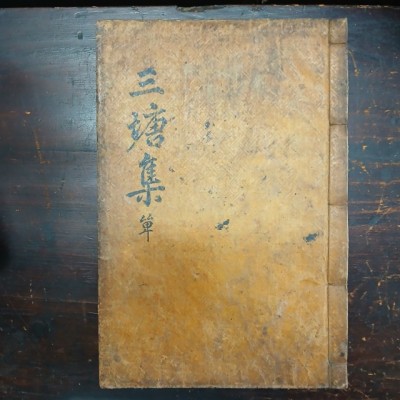 三塘集 單